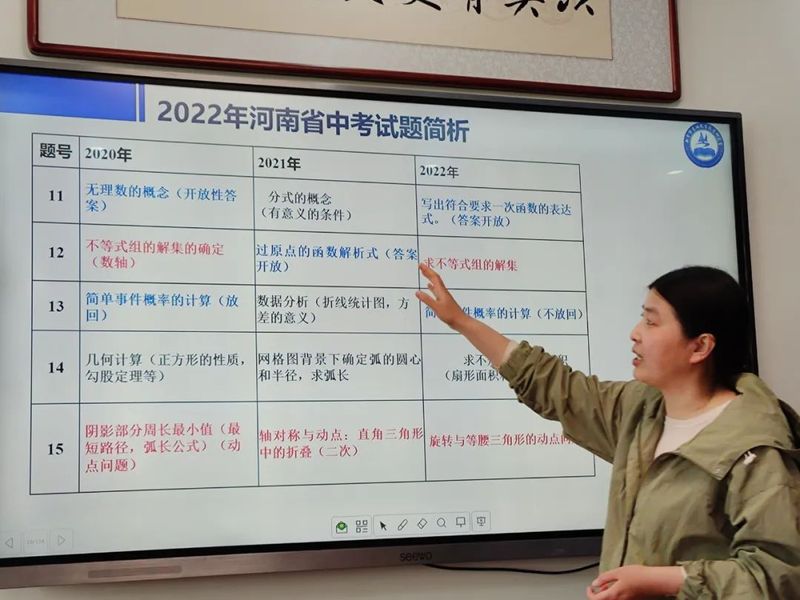 2022年河南省中考试题简析
题号
2020年
2021年
2022年
11
无理数的概念（开放性答
案）
分式的概念
（有意义的条件）
写出符合要求一次函数的表达
式。（答案开放）
12
不等式组的解集的确定
（数轴）
过原点的函数解析式（答案
开放）
求不等式组的解集
13
简单事件概率的计算（放
回）
数据分析（折线统计图，方
差的意义）
简
事件概率的计算（不放回）
14
几何计算（正方形的性质，
勾股定理等）
网格图背景下确定弧的圆心
和半径，求弧长
求不
（扇形面积
15
阴影部分周长最小值（最
短路径，弧长公式）（动
点问题）
轴对称与动点：直角三角形
中的折叠（二次）
旋转与等腰三角形的动点问
seewo